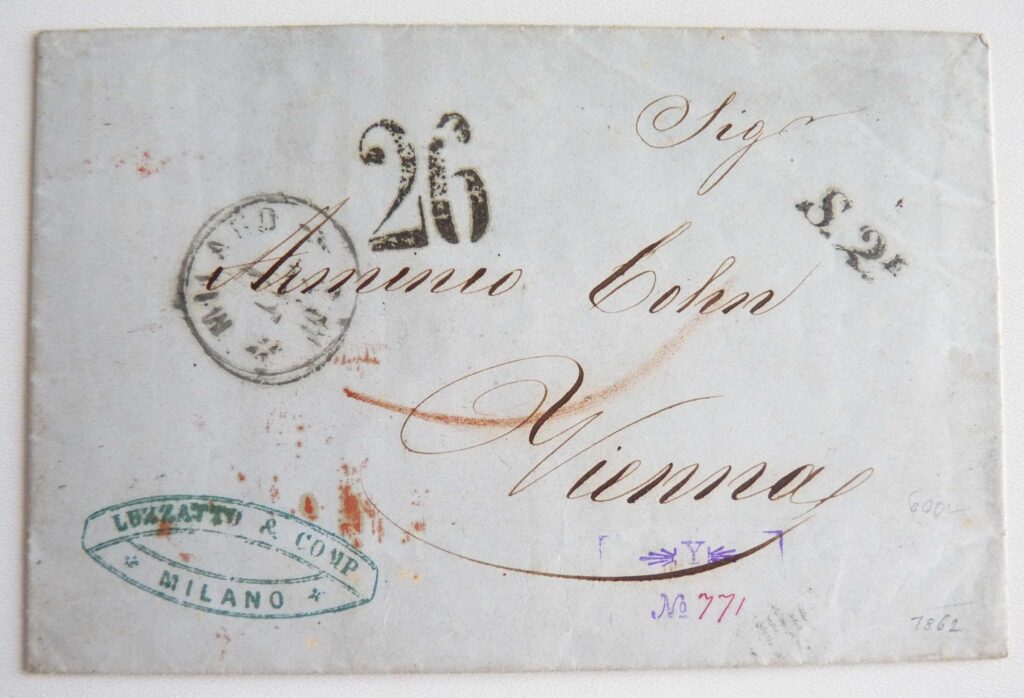 Sigr
26
S. 2ª
MILANO
Arminio Cohn
Vienna
LUZZATTO & COMP
MILANO
Y
No 771
600
1862